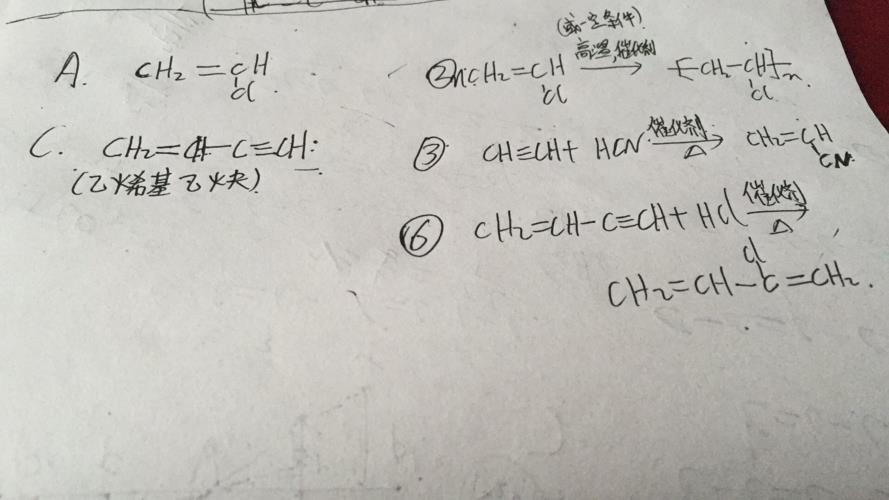 A. CH₂=CH
Cl
C. CH₂=CH-C≡CH:
(乙烯基乙炔)
(或一定条件)
② nCH₂=CH 高温,催化剂 → -[CH₂-CH]-n.
Cl Cl
③ CH≡CH+ HCN 催化剂 △ → CH₂=CH
CN
⑥ CH₂=CH-C≡CH+ HCl 催化剂 △ →
Cl
CH₂=CH-C=CH₂.